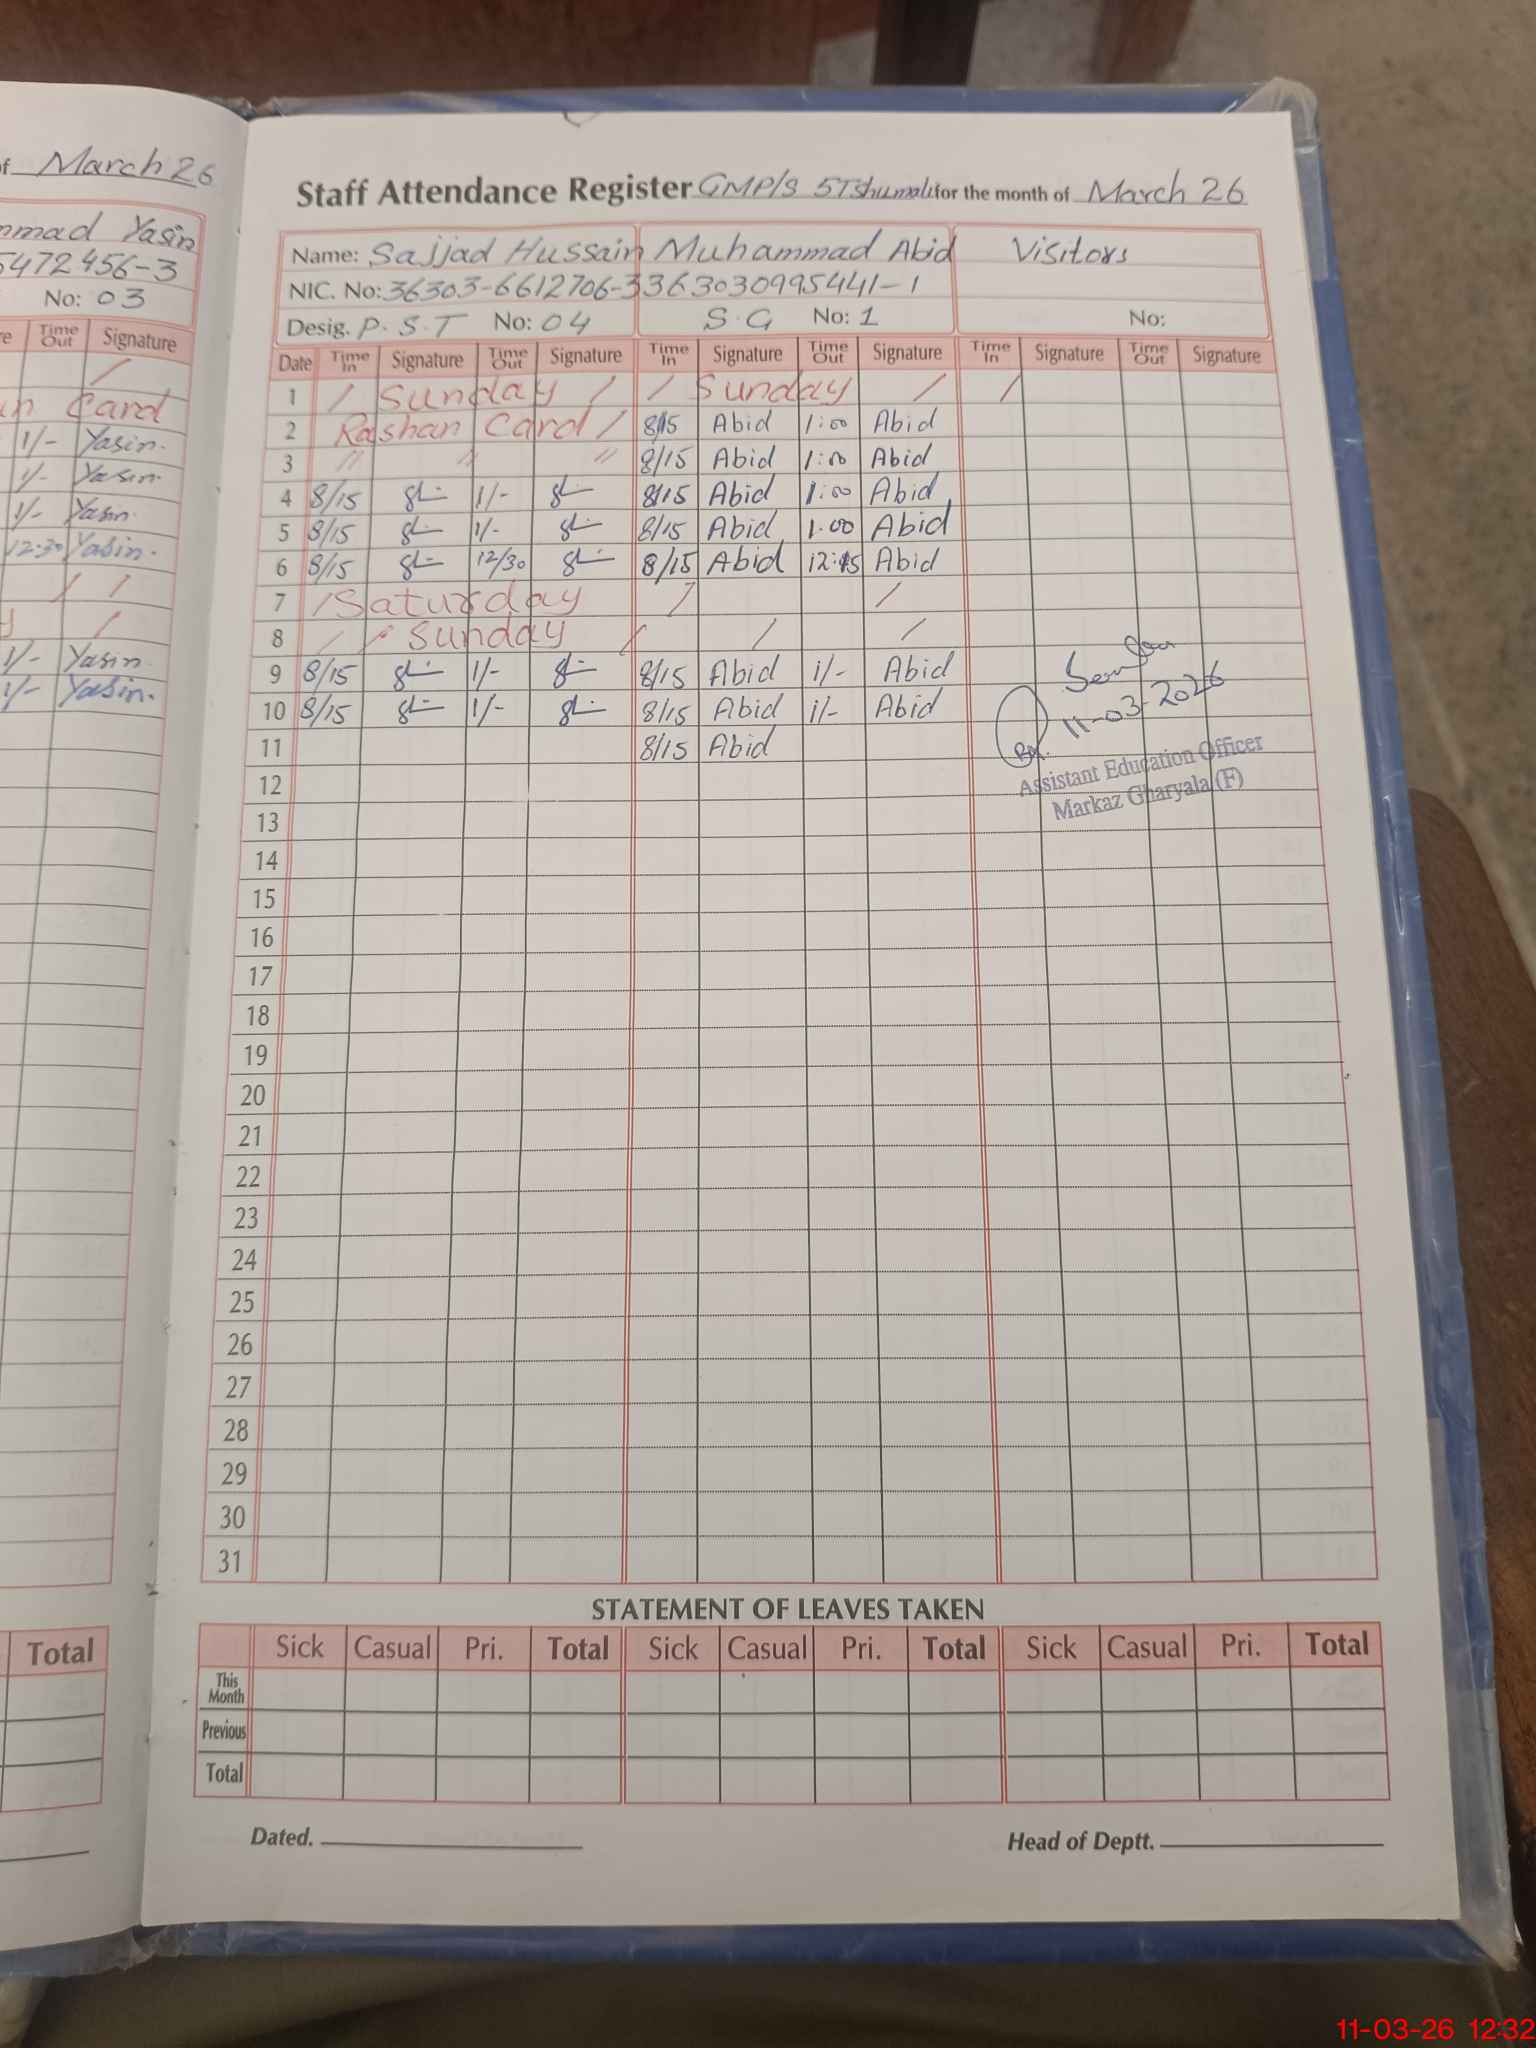 of March 26
mmad Yasin
5472456-3
No: 03
re Time Out Signature
un Card
1/- Yasin.
1/- Yasin.
1/- Yasin.
12:30 Yasin.
1/- Yasin
1/- Yasin.
Total
Staff Attendance Register GMP/S 5T Shumali for the month of March 26
Name: Sajjad Hussain Muhammad Abid Visitors
NIC. No: 36303-6612706-3 363030995441-1
Desig. P.S.T No: 04 S.G No: 1 No:
Date Time In Signature Time Out Signature Time In Signature Time Out Signature Time In Signature Time Out Signature
1 / Sunday / / Sunday / /
2 Rashan Card / 8/15 Abid 1:00 Abid
3 " " " 8/15 Abid 1:00 Abid
4 8/15 1/- 8/15 Abid 1:00 Abid
5 8/15 1/- 8/15 Abid 1:00 Abid
6 8/15 12/30 8/15 Abid 12:15 Abid
7 / Saturday / /
8 / / Sunday / / /
9 8/15 1/- 8/15 Abid 1/- Abid
10 8/15 1/- 8/15 Abid 1/- Abid
11-03-2026
11 8/15 Abid
Assistant Education Officer
Markaz Gharyala (F)
12
13
14
15
16
17
18
19
20
21
22
23
24
25
26
27
28
29
30
31
STATEMENT OF LEAVES TAKEN
Sick Casual Pri. Total Sick Casual Pri. Total Sick Casual Pri. Total
This Month
Previous
Total
Dated.
Head of Deptt.
11-03-26 12:32